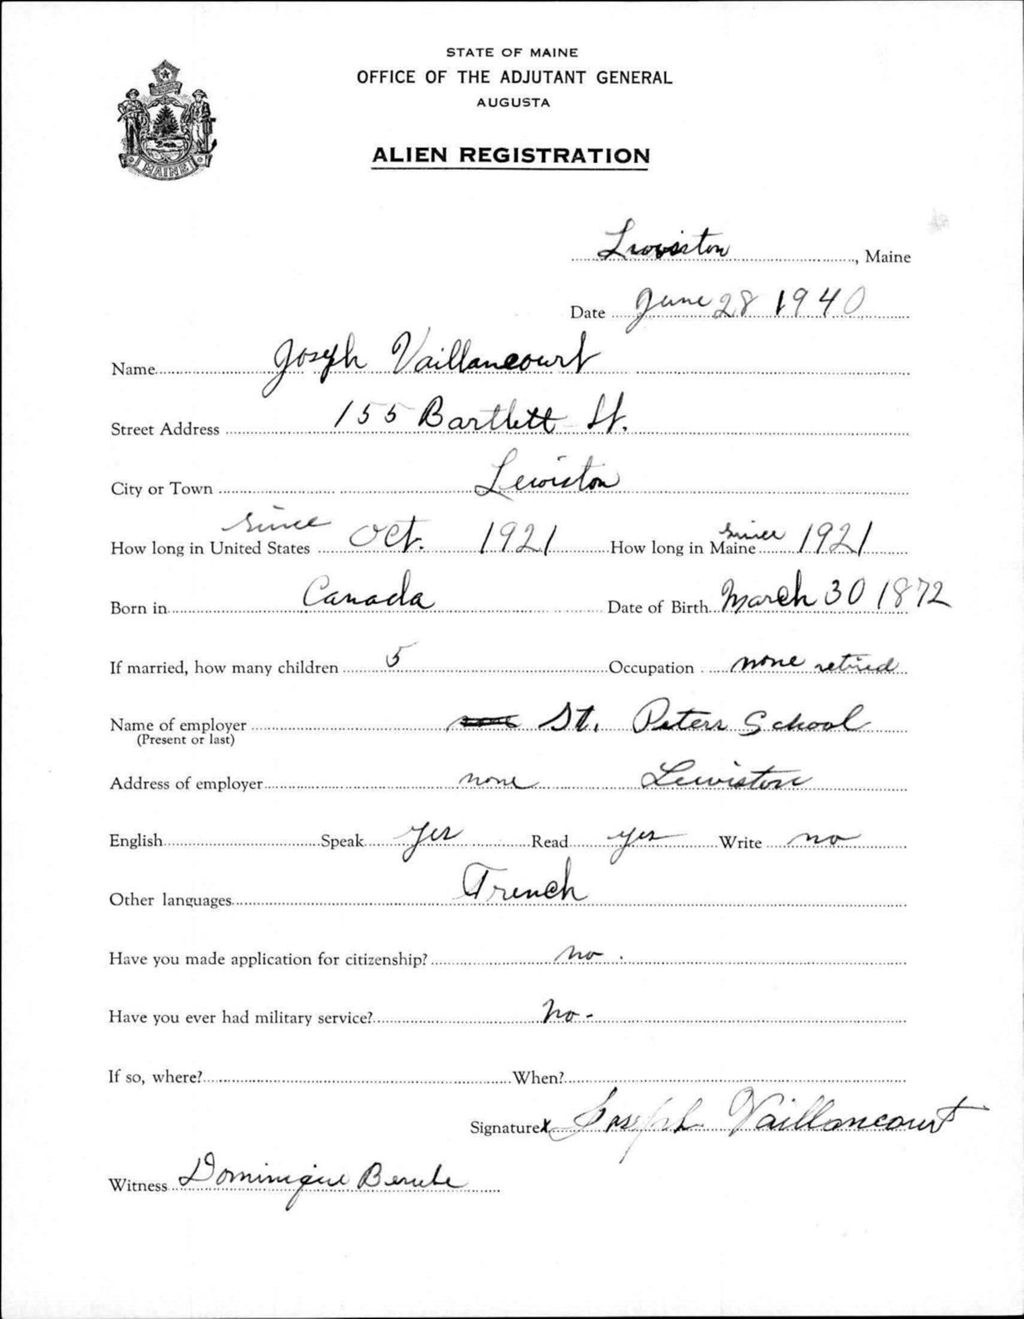 STATE OF MAINE
OFFICE OF THE ADJUTANT GENERAL
AUGUSTA
ALIEN REGISTRATION
MAINE
Lewiston, Maine
Date June 28 1940
Name Joseph Vaillancourt
Street Address 155 Bartlett St.
City or Town Lewiston
How long in United States since Oct. 1921 How long in Maine since 1921
Born in Canada Date of Birth March 30 1872
If married, how many children 5 Occupation none retired
Name of employer St. Peters School
(Present or last)
Address of employer none Lewiston
English Speak yes Read yes Write no
Other languages French
Have you made application for citizenship? no.
Have you ever had military service? No-
If so, where? When?
Signature X Joseph Vaillancourt
Witness Dominique Berube